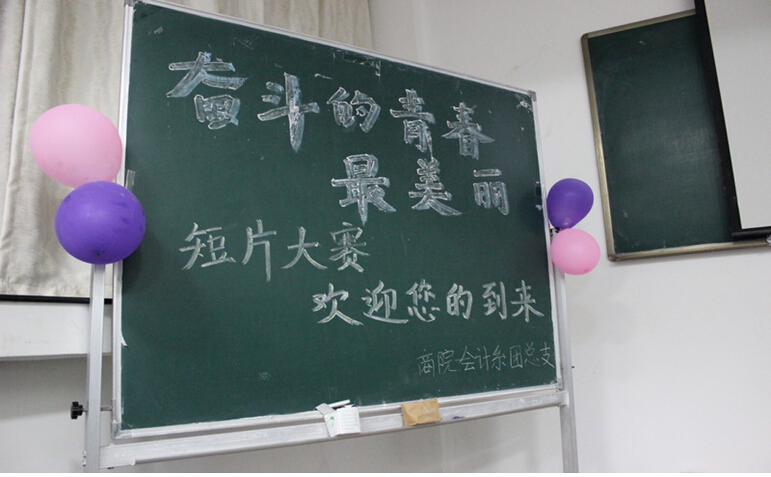 奋斗的青春
最美丽
短片大赛
欢迎您的到来
商院会计系团总支